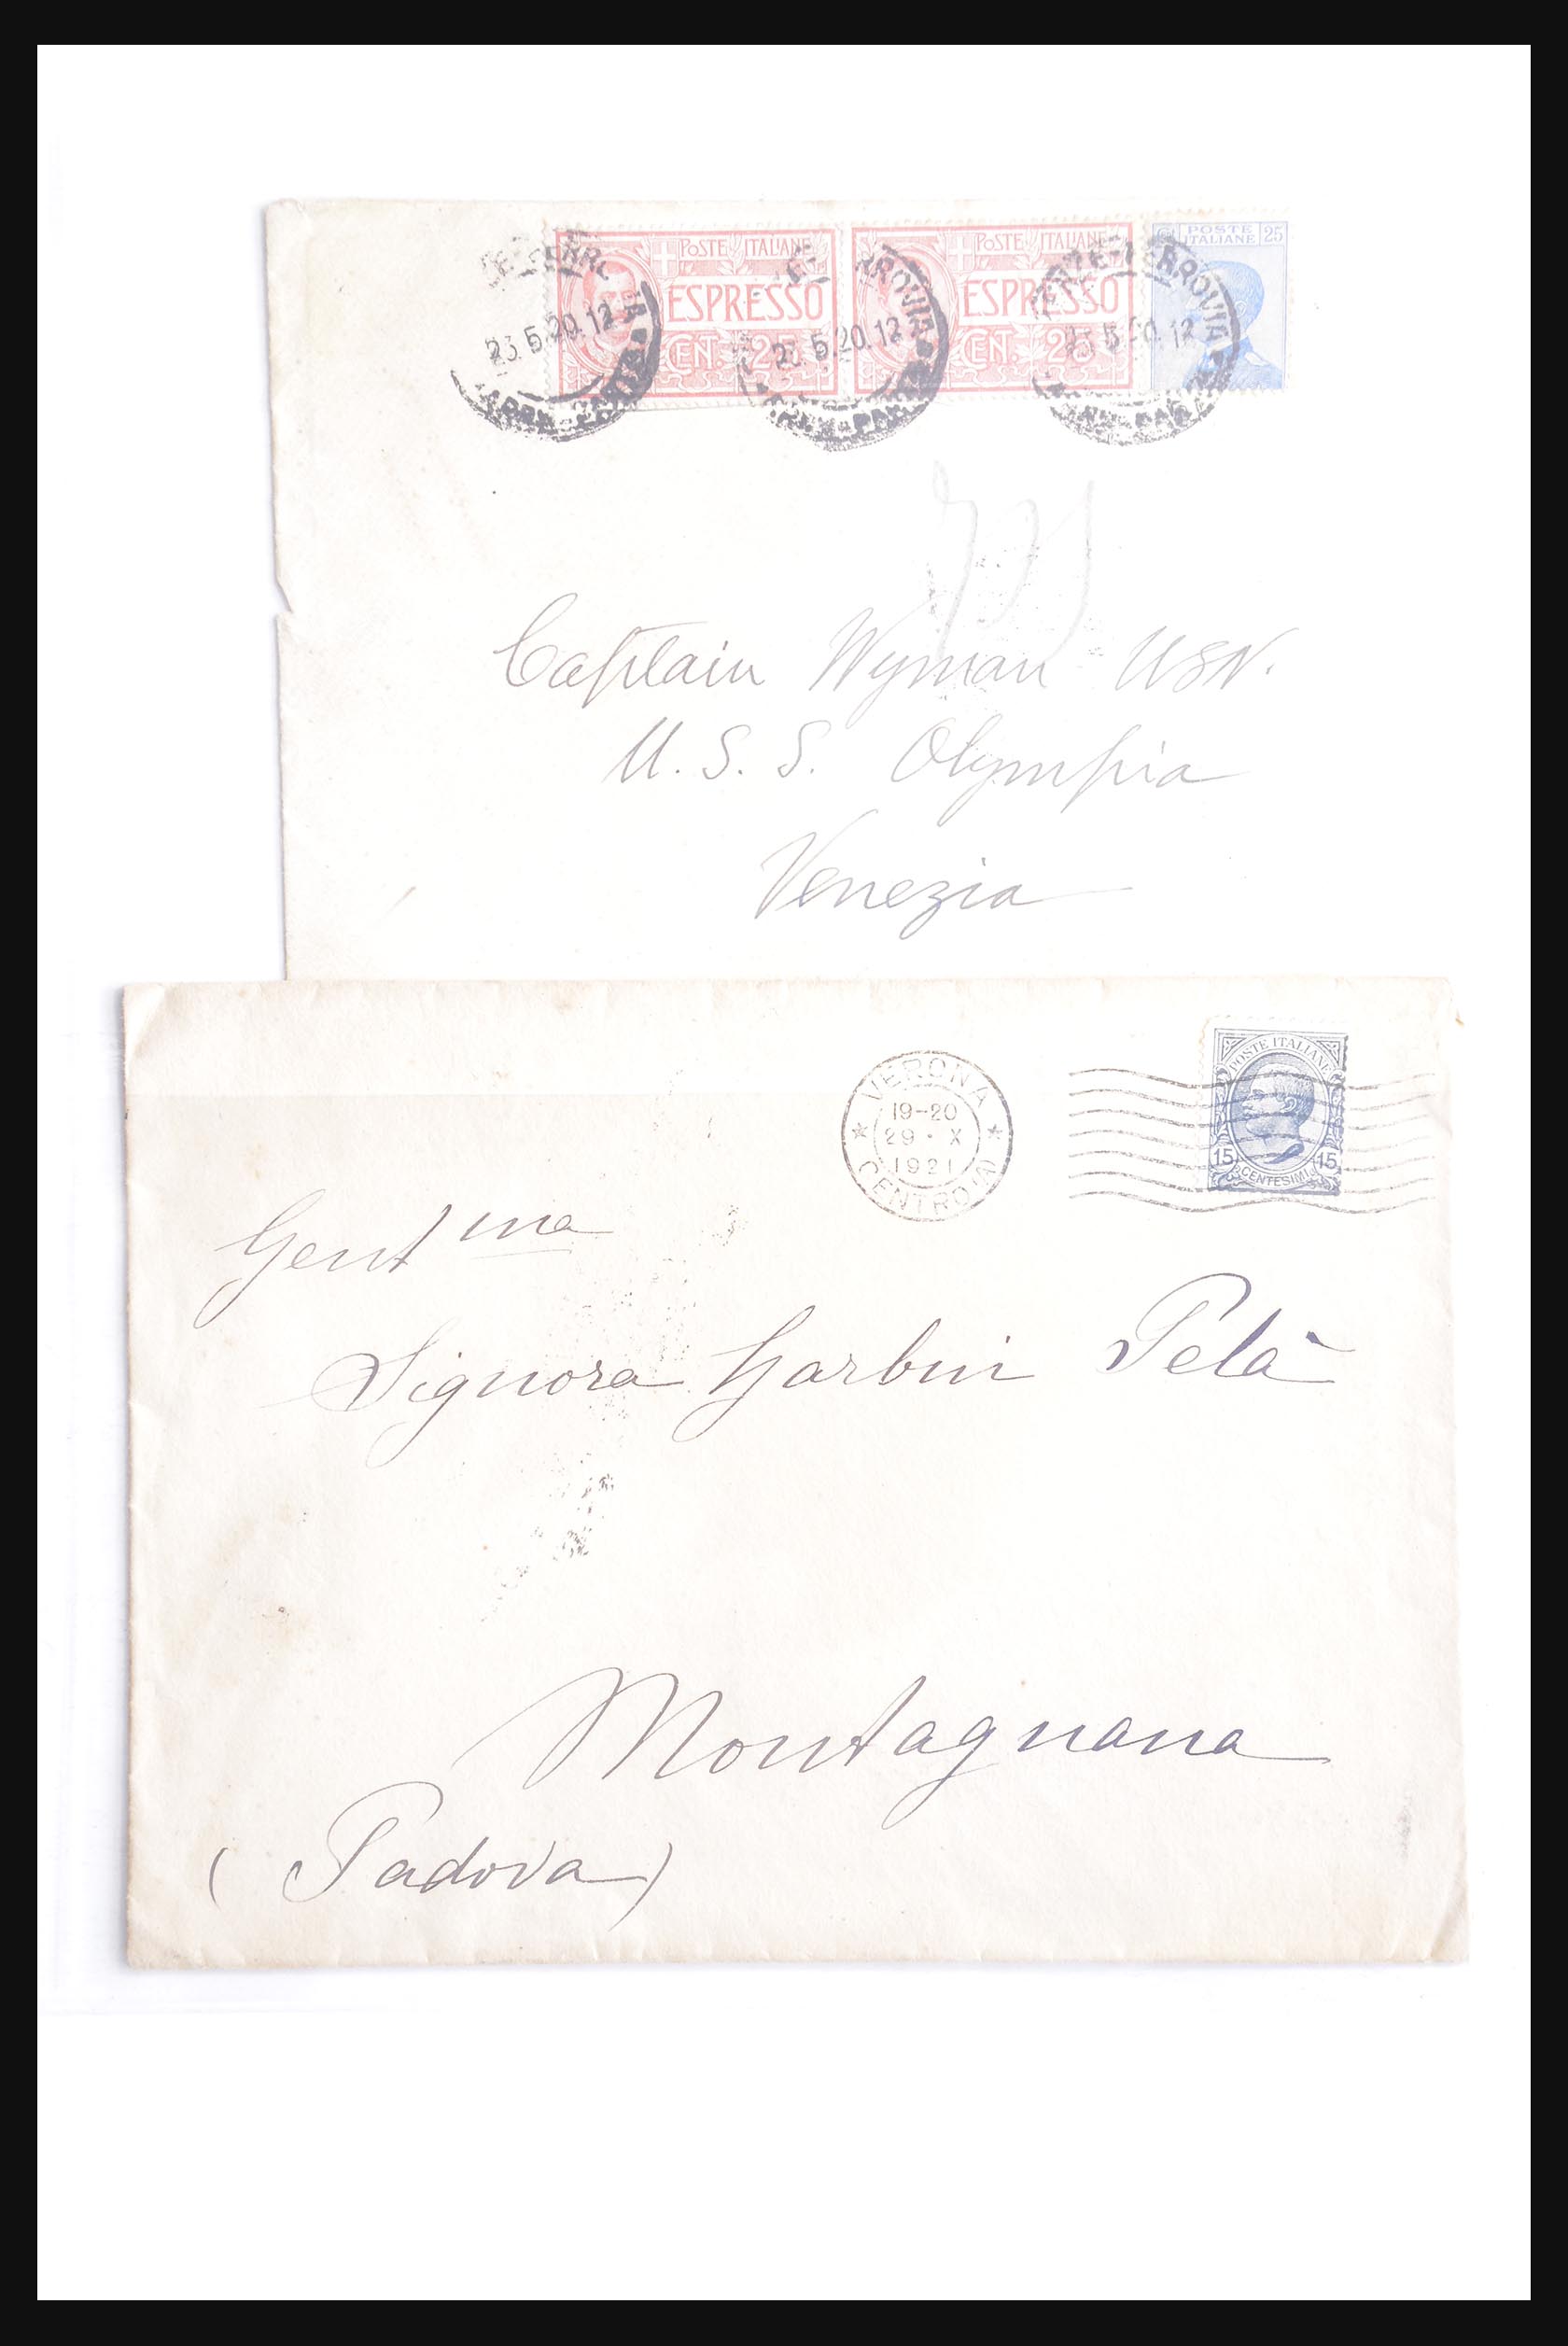 POSTE ITALIANE
ESPRESSO
CEN. 25
POSTE ITALIANE
ESPRESSO
CEN. 25
POSTE ITALIANE 25
23.5.20.12
23.5.20.12
23.5.20.12
FERROVIA
Captain Wyman USN.
U.S.S. Olympia
Venezia
VERONA
19-20
29·X
1921
CENTRO (A)
POSTE ITALIANE
15 15
CENTESIMI
Gent ma
Signora Garbini Pelà
Montagnana
(Padova)